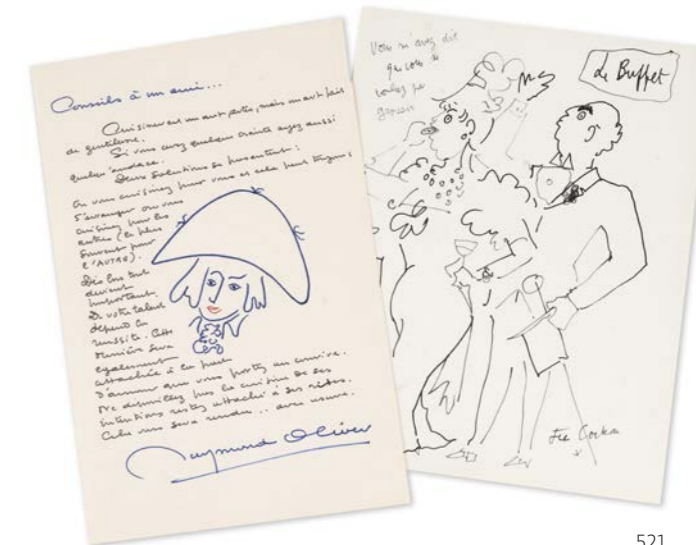 Conseils à un ami...
Cuisiner est un art partes, mais un art fait
de gentillesse.
Si vous avez quelque crainte ayez aussi
quelqu'audace.
Deux solutions se présentent :
Ou vous cuisinez pour vous et cela peut toujours
s'arranger ou vous
cuisinez pour les
autres (le plus
souvent pour
l'AUTRE).
Dès lors tout
devient
important.
De votre talent
dépend la
réussite. Cette
dernière sera
également
attachée à la part
D'amour que vous portez au convive.
Ne dépouillez pas la cuisine de ses
intentions restez attaché à ses rites.
Cela vous sera rendu... avec usure.
Raymond Oliver
Vous m'avez dit
que vous ne
vouliez pas
grossir
Le Buffet
Jean Cocteau
521